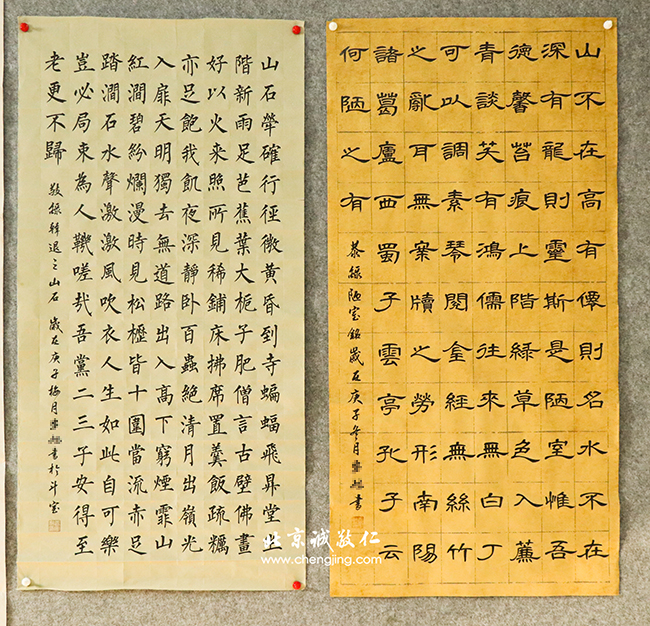 山不在高有僊則名水不在
深有龍則靈斯是陋室惟吾
德馨苔痕上階綠草色入薕
青談笑有鴻儒往來無白丁
可以調素琴閱金經無絲竹
之亂耳無案牘之勞形南陽
諸葛廬西蜀子雲亭孔子云
何陋之有 恭錄陋室銘歲在庚子冬月書
山石犖確行徑微黃昏到寺蝙蝠飛昇堂坐
階新雨足芭蕉葉大梔子肥僧言古壁佛畫
好以火來照所見稀鋪床拂席置羹飯疏糲
亦足飽我飢夜深靜臥百蟲絕清月出嶺光
入扉天明獨去無道路出入高下窮煙霏山
紅澗碧紛爛漫時見松櫪皆十圍當流赤足
踏澗石水聲激激風吹衣人生如此自可樂
豈必局束為人鞿嗟哉吾黨二三子安得至
老更不歸 敬錄韓退之山石 歲在庚子梅月書於斗室
北京诚敬仁
www.chengjing.com